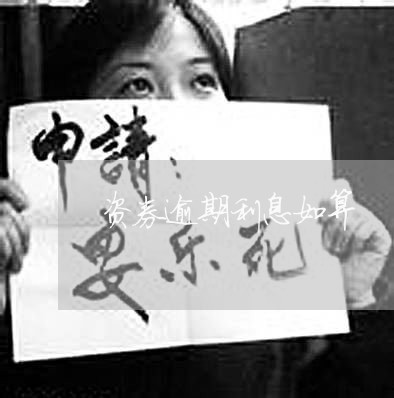 申請：
资券逾期利息如算
安乐死